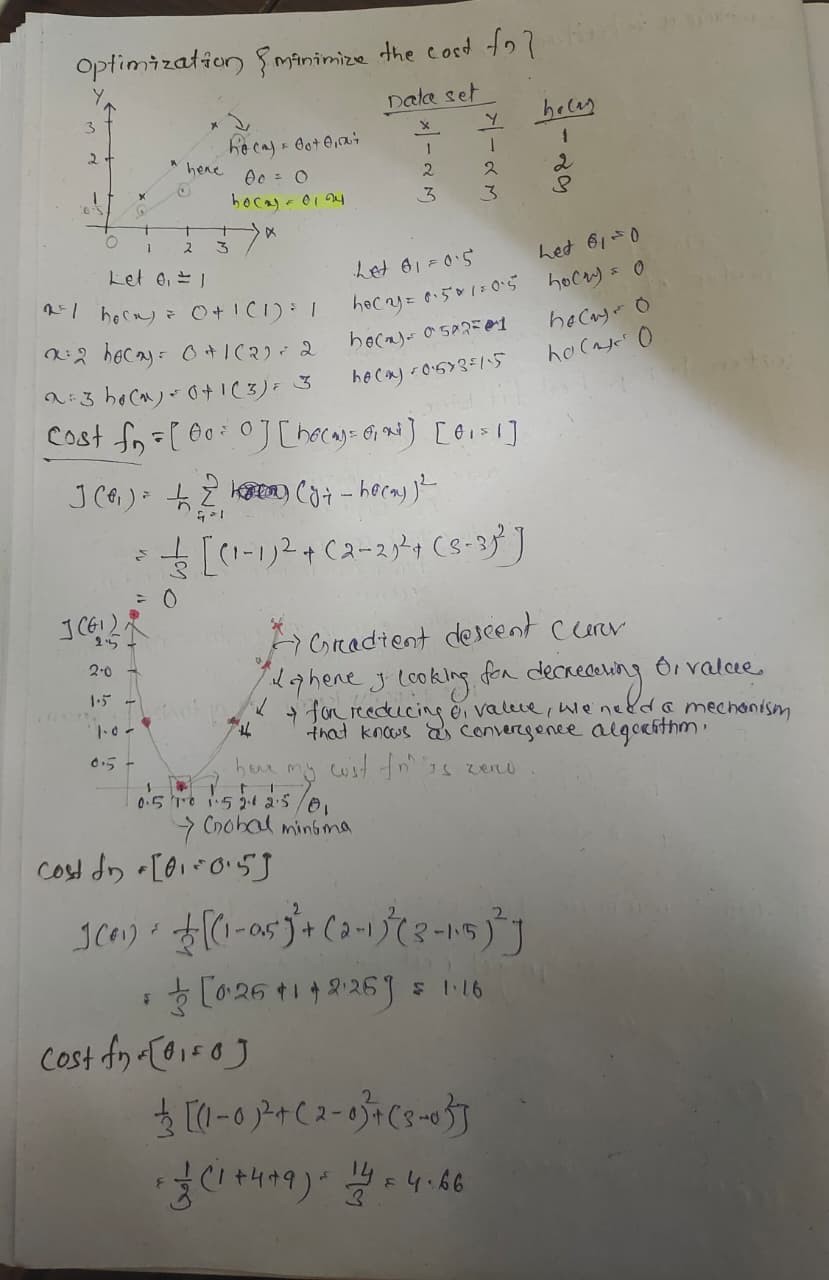 Optimization {minimize the cost fn}
Y
3
2
1
0.5
0
1 2 3
x
hθ(x) = θ0 + θ1xi
here θ0 = 0
hθ(x) = θ1xi
Data set
x Y hθ(x)
1 1 1
2 2 2
3 3 3
Let θ1 = 1
x=1 hθ(x) = 0+1(1) = 1
x=2 hθ(x) = 0+1(2) = 2
x=3 hθ(x) = 0+1(3) = 3
Let θ1 = 0.5
hθ(x) = 0.5×1 = 0.5
hθ(x) = 0.5×2 = 1
hθ(x) = 0.5×3 = 1.5
Let θ1 = 0
hθ(x) = 0
hθ(x) = 0
hθ(x) = 0
Cost fn = [θ0 = 0] [hθ(x) = θ1xi] [θ1 = 1]
J(θ1) = 1/n Σ i=1 n (yi - hθ(x))²
= 1/3 [(1-1)² + (2-2)² + (3-3)²]
= 0
J(θ1)
2.5
2.0
1.5
1.0
0.5
0.5 1.0 1.5 2.0 2.5 θ1
→ Gradient descent curv
→ here J looking for decreasing θ1 value
→ for reducing θ1 value, we need a mechanism
that knows as convergence algorithm.
→ here my cost fn is zero.
→ Global minima
cost fn = [θ1 = 0.5]
J(θ1) = 1/3 [(1-0.5)² + (2-1)² (3-1.5)²]
= 1/3 [0.25 + 1 + 2.25] = 1.16
cost fn = [θ1 = 0]
1/3 [(1-0)² + (2-0)² + (3-0)²]
= 1/3 (1+4+9) = 14/3 = 4.66